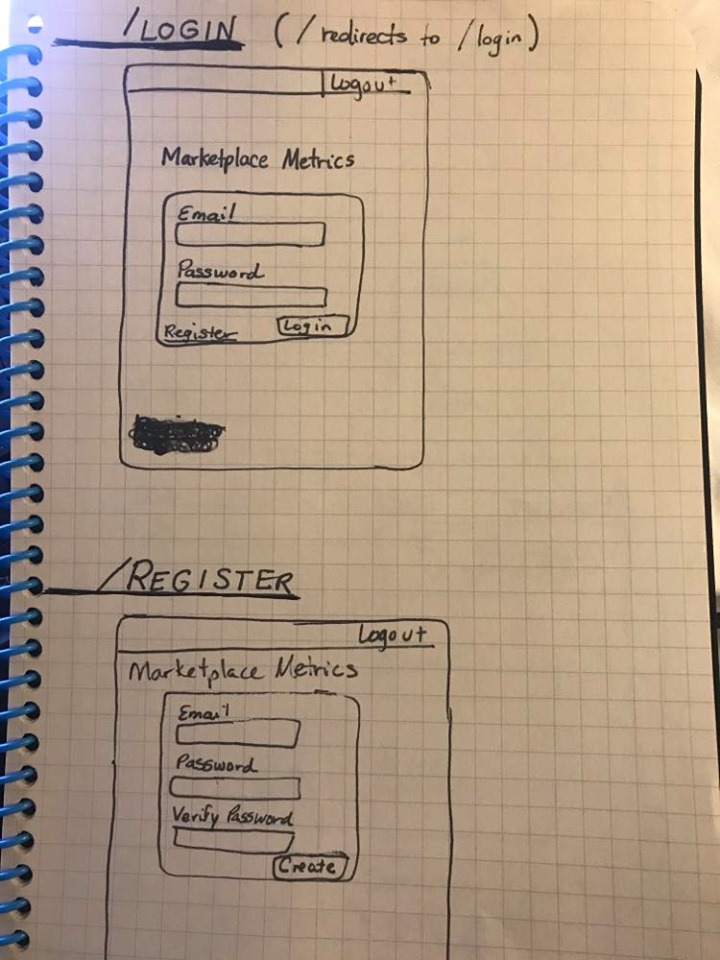 /LOGIN (/ redirects to /login)
Logout
Marketplace Metrics
Email
Password
Register Login
/REGISTER
Logout
Marketplace Metrics
Email
Password
Verify Password
Create